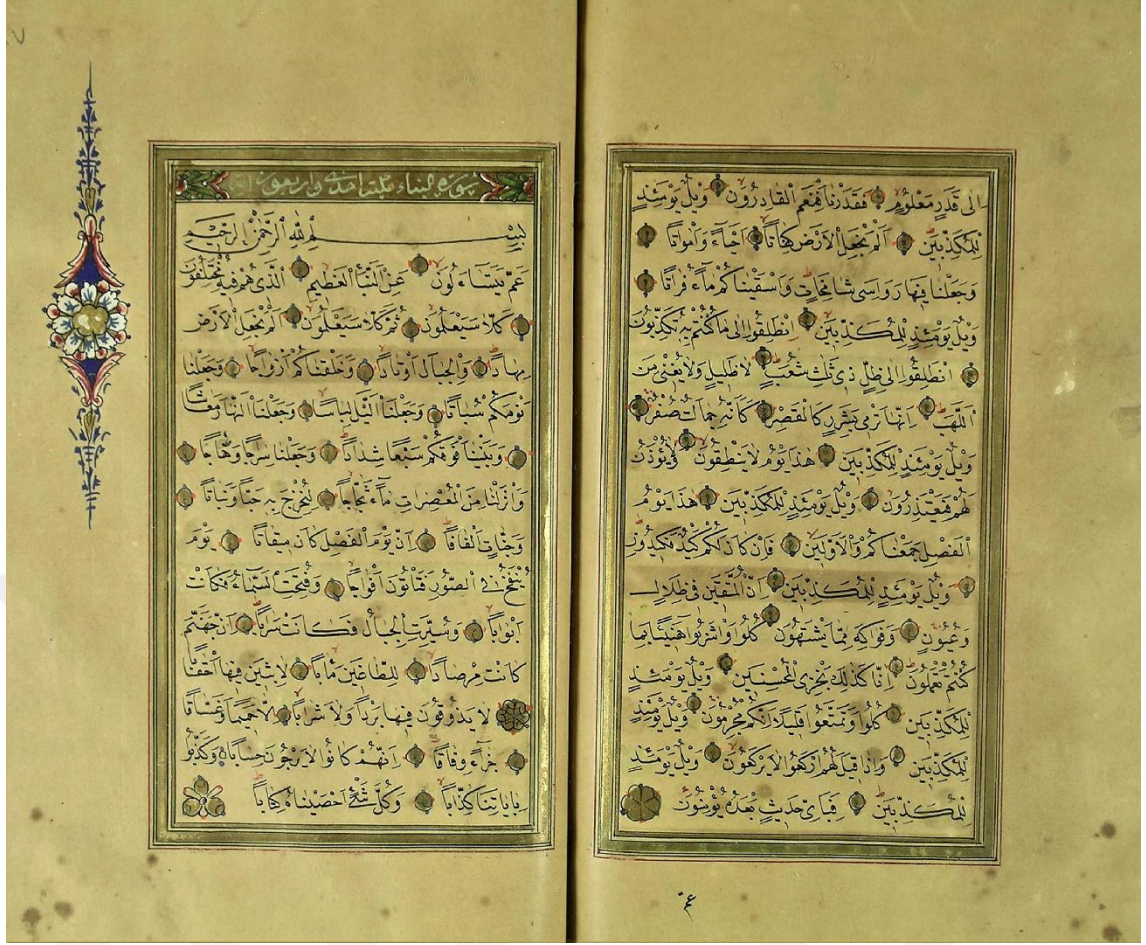 اِلٰى قَدَرٍ مَعْلُومٍ فَقَدَرْنَا فَنِعْمَ الْقَادِرُونَ وَيْلٌ يَوْمَئِذٍ
لِلْمُكَذِّبِينَ اَلَمْ نَجْعَلِ الْاَرْضَ كِفَاتًا اَحْيَاءً وَاَمْوَاتًا
وَجَعَلْنَا فِيهَا رَوَاسِيَ شَامِخَاتٍ وَاَسْقَيْنَاكُمْ مَاءً فُرَاتًا
وَيْلٌ يَوْمَئِذٍ لِلْمُكَذِّبِينَ اِنْطَلِقُوا اِلٰى مَا كُنْتُمْ بِهِ تُكَذِّبُونَ
اِنْطَلِقُوا اِلٰى ظِلٍّ ذِي ثَلٰثِ شُعَبٍ لَا ظَلِيلٍ وَلَا يُغْنِي مِنَ
اللَّهَبِ اِنَّهَا تَرْمِي بِشَرَرٍ كَالْقَصْرِ كَاَنَّهُ جِمَالَتٌ صُفْرٌ
وَيْلٌ يَوْمَئِذٍ لِلْمُكَذِّبِينَ هٰذَا يَوْمُ لَا يَنْطِقُونَ وَلَا يُؤْذَنُ
لَهُمْ فَيَعْتَذِرُونَ وَيْلٌ يَوْمَئِذٍ لِلْمُكَذِّبِينَ هٰذَا يَوْمُ
الْفَصْلِ جَمَعْنَاكُمْ وَالْاَوَّلِينَ فَاِنْ كَانَ لَكُمْ كَيْدٌ فَكِيدُونِ
وَيْلٌ يَوْمَئِذٍ لِلْمُكَذِّبِينَ اِنَّ الْمُتَّقِينَ فِي ظِلَالٍ
وَعُيُونٍ وَفَوَاكِهَ مِمَّا يَشْتَهُونَ كُلُوا وَاشْرَبُوا هَنِيئًا بِمَا
كُنْتُمْ تَعْمَلُونَ اِنَّا كَذٰلِكَ نَجْزِي الْمُحْسِنِينَ وَيْلٌ يَوْمَئِذٍ
لِلْمُكَذِّبِينَ كُلُوا وَتَمَتَّعُوا قَلِيلًا اِنَّكُمْ مُجْرِمُونَ وَيْلٌ يَوْمَئِذٍ
لِلْمُكَذِّبِينَ وَاِذَا قِيلَ لَهُمُ ارْكَعُوا لَا يَرْكَعُونَ وَيْلٌ يَوْمَئِذٍ
لِلْمُكَذِّبِينَ فَبِاَيِّ حَدِيثٍ بَعْدَهُ يُؤْمِنُونَ
عمّ
سورة النباء مكية احدى واربعون
بِسْمِ اللّٰهِ الرَّحْمٰنِ الرَّحِيمِ
عَمَّ يَتَسَاءَلُونَ عَنِ النَّبَاِ الْعَظِيمِ اَلَّذِي هُمْ فِيهِ مُخْتَلِفُونَ
كَلَّا سَيَعْلَمُونَ ثُمَّ كَلَّا سَيَعْلَمُونَ اَلَمْ نَجْعَلِ الْاَرْضَ
مِهَادًا وَالْجِبَالَ اَوْتَادًا وَخَلَقْنَاكُمْ اَزْوَاجًا وَجَعَلْنَا
نَوْمَكُمْ سُبَاتًا وَجَعَلْنَا الَّيْلَ لِبَاسًا وَجَعَلْنَا النَّهَارَ مَعَاشًا
وَبَنَيْنَا فَوْقَكُمْ سَبْعًا شِدَادًا وَجَعَلْنَا سِرَاجًا وَهَّاجًا
وَاَنْزَلْنَا مِنَ الْمُعْصِرَاتِ مَاءً ثَجَّاجًا لِنُخْرِجَ بِهِ حَبًّا وَنَبَاتًا
وَجَنَّاتٍ اَلْفَافًا اِنَّ يَوْمَ الْفَصْلِ كَانَ مِيقَاتًا يَوْمَ
يُنْفَخُ فِي الصُّورِ فَتَاْتُونَ اَفْوَاجًا وَفُتِحَتِ السَّمَاءُ فَكَانَتْ
اَبْوَابًا وَسُيِّرَتِ الْجِبَالُ فَكَانَتْ سَرَابًا اِنَّ جَهَنَّمَ
كَانَتْ مِرْصَادًا لِلطَّاغِينَ مَاٰبًا لَابِثِينَ فِيهَا اَحْقَابًا
لَا يَذُوقُونَ فِيهَا بَرْدًا وَلَا شَرَابًا اِلَّا حَمِيمًا وَغَسَّاقًا
جَزَاءً وِفَاقًا اِنَّهُمْ كَانُوا لَا يَرْجُونَ حِسَابًا وَكَذَّبُوا
بِاٰيَاتِنَا كِذَّابًا وَكُلَّ شَيْءٍ اَحْصَيْنَاهُ كِتَابًا